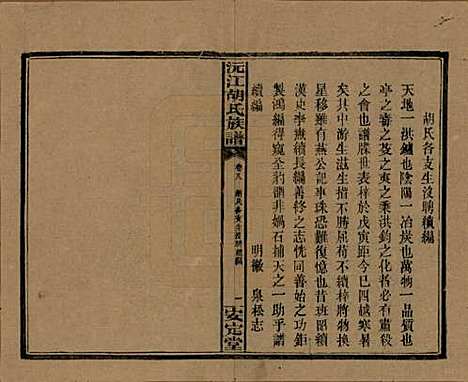 胡氏各支生沒聘續編
天地一洪鑪也陰陽一冶炭也萬物一品質也
亭之毒之芟之夷之乘洪鈞之化者必有肅殺
之會也譜牒世表肇於戊寅距今已四越寒暑
矣其中游生滋生指不勝屈苟不續梓將物換
星移雖有燕公記事珠恐難復憶也昔班昭續
漢史李燾續長編善終之志恍同善始之功鉅
製鴻編得窺全豹詎非媧石補天之一助乎譜
續編
明徽 泉松志
沅江胡氏族譜
卷八 胡氏各支生沒聘續編
一
安定堂